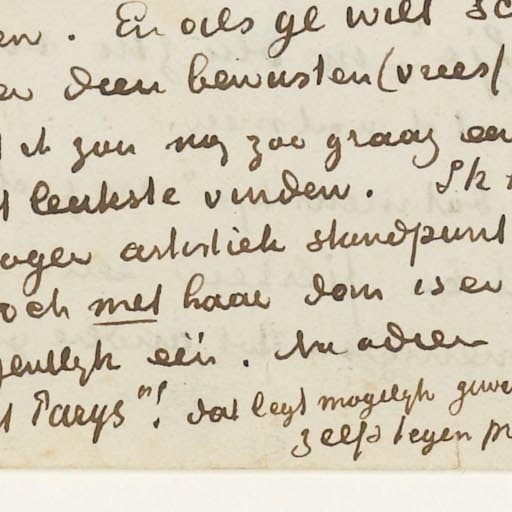 en. En als ge wilt sc
er deen bewusten (vrees/
ik zou nog zoo graag ee
t leukste vinden. Ik
oger artistiek standpunt
och met haar dom is er
gentlyk eén. Nu adieu
t Parys"! dat legt mogelyk gewe
zelfs tegen pr